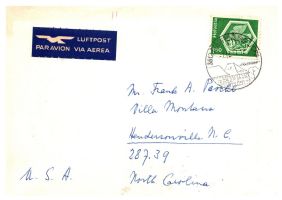 LUFTPOST
PAR AVION VIA AEREA
HELVETIA
Mr. Frank A.
Villa Montana
Hendersonville N.C.
287.39
U.S.A. North Carolina